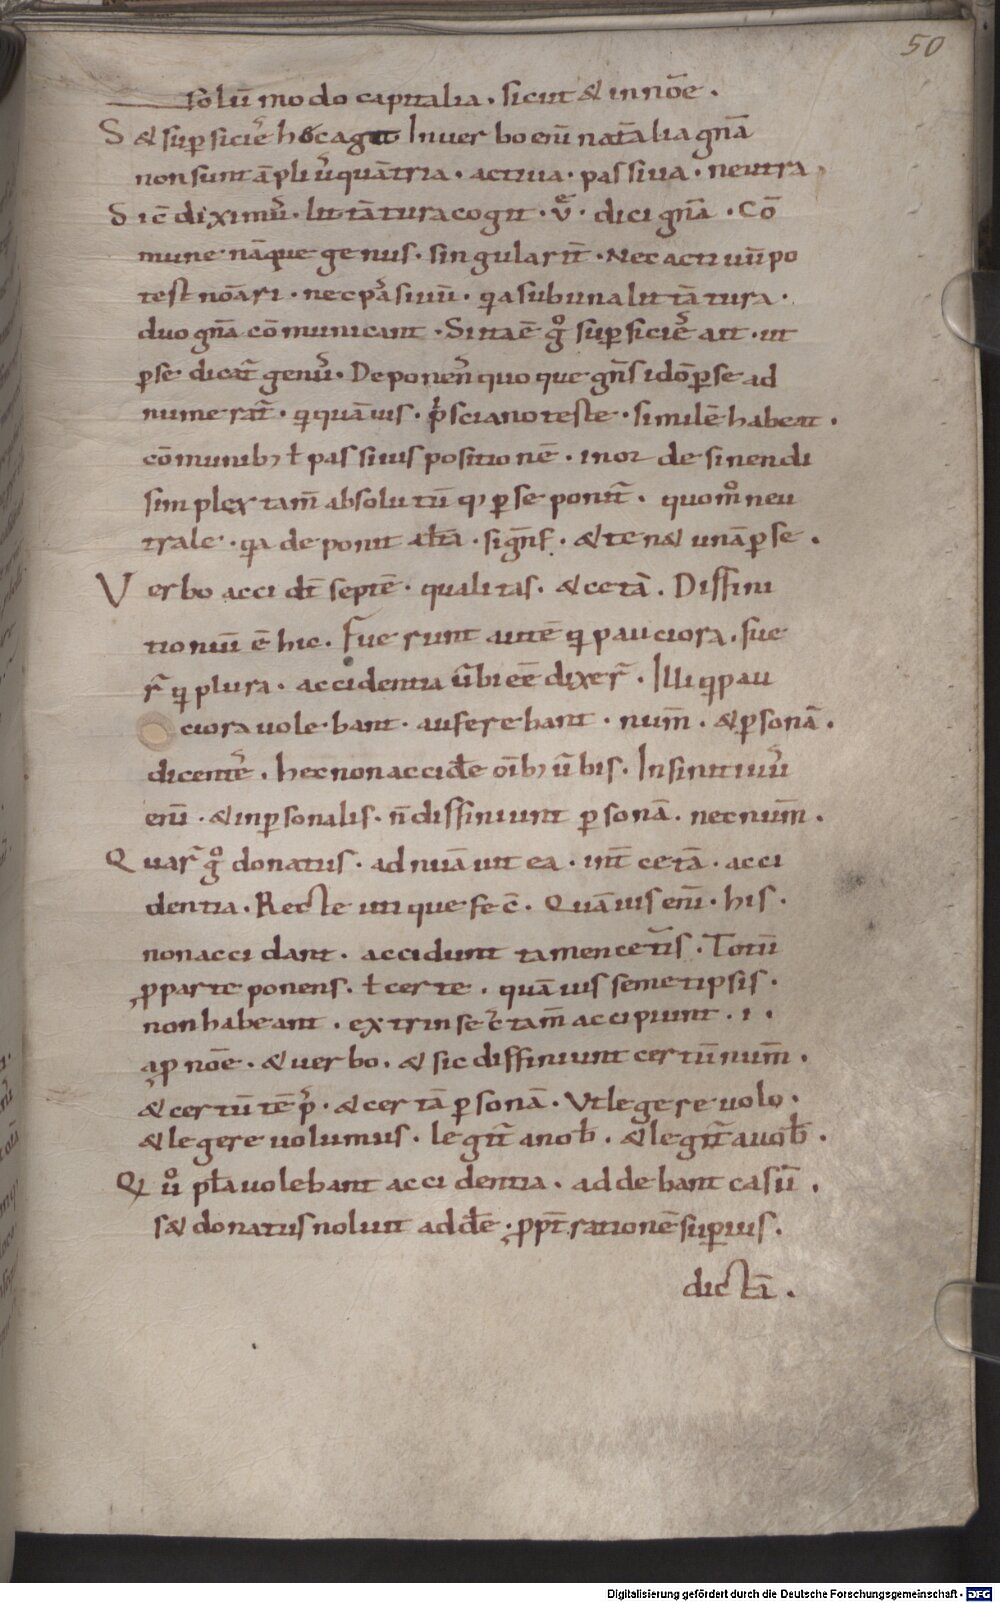 50
solū modo capitalia . sicut & in nōe .
S & sup̱ficiē hoc agit In uerbo enī natalia gn̄a
non sunt āpliꝰ quā tria . actiua . passiua . neutra
Sic̄ diximꝰ . litt̄a tura cogit . dici gn̄a . Cō
mune nāque genus . singularit̄ . Nec actiuū po
test nōari . nec passiuū . qa sub una litt̄a tura .
duo gn̄a cōmunicant . Sit taē g̊ sup̱ficiē att . ut
ꝑse dicat̄ genꝰ . Deponenſ quoque gn̄s idō ꝑse ad
numerat̄ . q quāuis . p̄sciano teste . similē habeat .
cōmunibꝫ ł passiuis positionē . in or desinendi
simplex tam̄ absolutū ꝑ se ponit̄ . quom̊ neu
trale . qa deponit alt̄a . sign̄f . & tenet unā ꝑse .
Verbo accidt̄ septē . qualitas . & cet̄a . Diffini
tionū ē hic . Fuerunt autē q pauciora . fue
r̄ q plura . accidentia ūbi eē dixer̄ . Illi q pau
ciora uolebant . auferebant . num̄ . & ꝑsonā .
dicentē . hec non accidē oībꝫ ūbis . Infinitiuꝰ
enī . & inꝑsonalis . n̄ diffiniunt ꝑsonā . nec num̄ .
Quar̄ g̊ donatus . adnuauit ea . int̄ cet̄a . acci
dentia . Recte utique fec̄ . Quāuis enī . his .
non accidant . accidunt tamen cet̄is . Totū
ꝓ parte ponens . ł certe . quāuis semetipsis .
non habeant . extrinsec̄ tam̄ accipiunt . i .
a ꝓnōe . & uerbo . & sic diffiniunt certū num̄ .
& certū tēp̄ . & certā ꝑsonā . Ut legere uolo .
& legere uolumus . legit̄ a nob̄ . & legit̄ a uob̄ .
Qui ů pl̄a uolebant accidentia . addebant casū .
s& donatus noluit addē . ꝓpt̄ rationē suꝑius .
dictā .
Digitalisierung gefördert durch die Deutsche Forschungsgemeinschaft - DFG